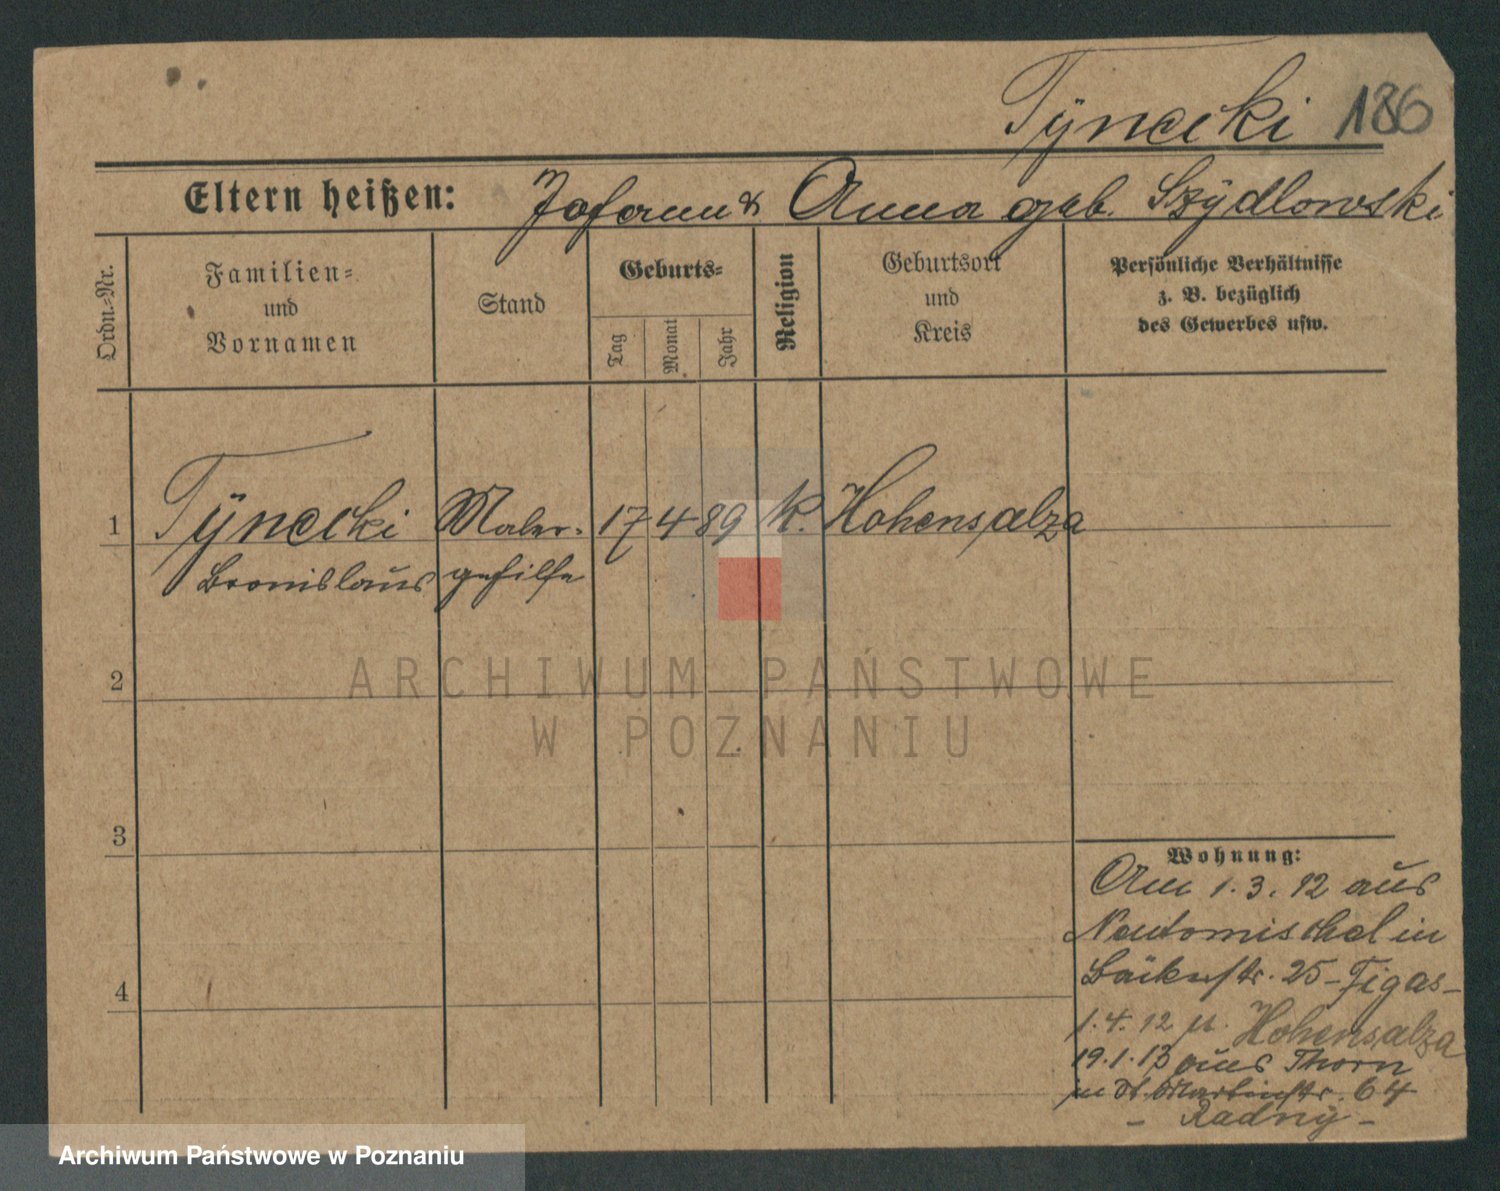 Tÿnecki 186
Eltern heißen: Johann & Anna geb. Szÿdlowski
Ordn.-Nr.
Familien-
und
Vornamen
Stand
Geburts-
Tag
Monat
Jahr
Religion
Geburtsort
und
Kreis
Persönliche Verhältnisse
z. B. bezüglich
des Gewerbes usw.
1 Tÿnecki Maler- 17 4 89 k. Hohensalza
Bronislaus gehilfe
2
ARCHIWUM PAŃSTWOWE
W POZNANIU
3
4
Wohnung:
Am 1.3.12 aus
Neutomischel in
Bäckerstr. 25 - Figas -
1.4.12 n. Hohensalza
19.1.13 aus Thorn
in St. Martinstr. 64
- Radnÿ -
Archiwum Państwowe w Poznaniu